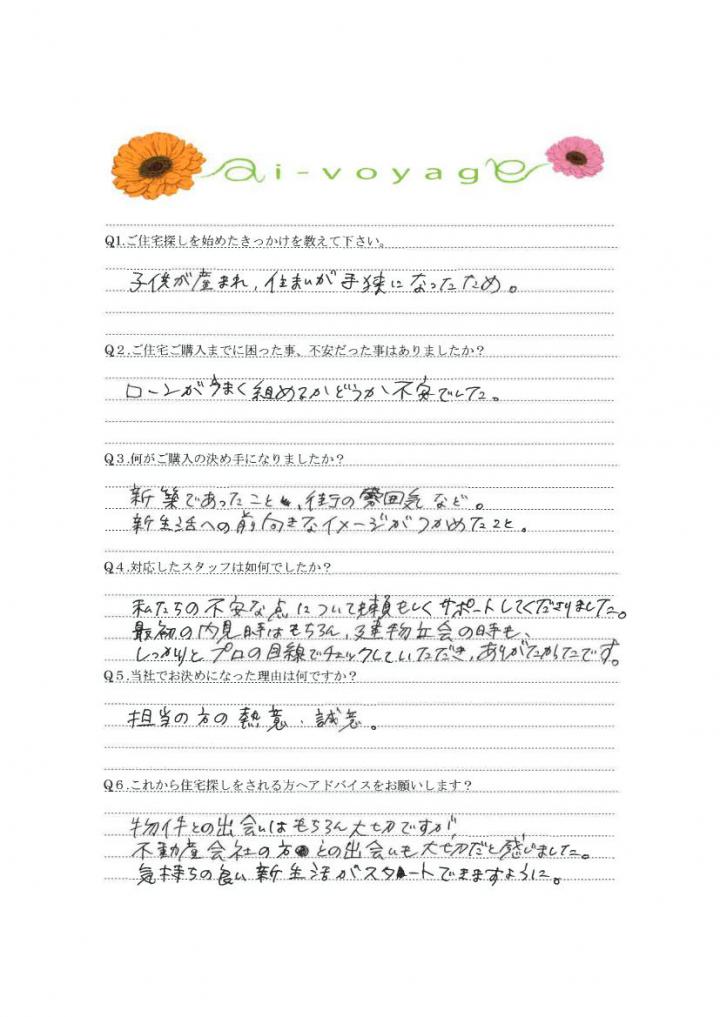 ai-voyage
Q1.ご住宅探しを始めたきっかけを教えて下さい。
子供が産まれ、住まいが手狭になったため。
Q2.ご住宅ご購入までに困った事、不安だった事はありましたか?
ローンがうまく組めるかどうか不安でした。
Q3.何がご購入の決め手になりましたか?
新築であったこと、街の雰囲気など。
新生活への前向きなイメージがつかめたこと。
Q4.対応したスタッフは如何でしたか?
私たちの不安な点についても頼もしくサポートしてくださりました。
最初の内見時はもちろん、建物立会の時も、
しっかりとプロの目線でチェックしていただき、ありがたかったです。
Q5.当社でお決めになった理由は何ですか?
担当の方の熱意、誠意。
Q6.これから住宅探しをされる方へアドバイスをお願いします?
物件との出会いはもちろん大切ですが、
不動産会社の方との出会いも大切だと感じました。
気持ちの良い新生活がスタートできますように。